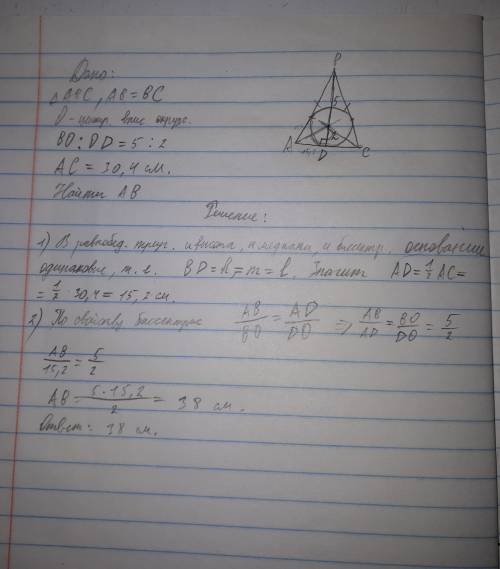 Дано:
△ABC, AB = BC
O - центр впис. окруж.
BO : OD = 5 : 2
AC = 30,4 см.
Найти AB
Решение:
1) В равнобед. треуг. и высота, и медиана, и биссектр. основание
одинаковые, т. е. BD = h = m = l. Значит AD = 1/2 AC =
= 1/2 · 30,4 = 15,2 см.
2) По свойству биссектрис AB/BO = AD/DO ⇒ AB/AD = BO/DO = 5/2
AB/15,2 = 5/2
AB = 5 · 15,2/2 = 38 см.
Ответ: 38 см.
A
D
C
5
2